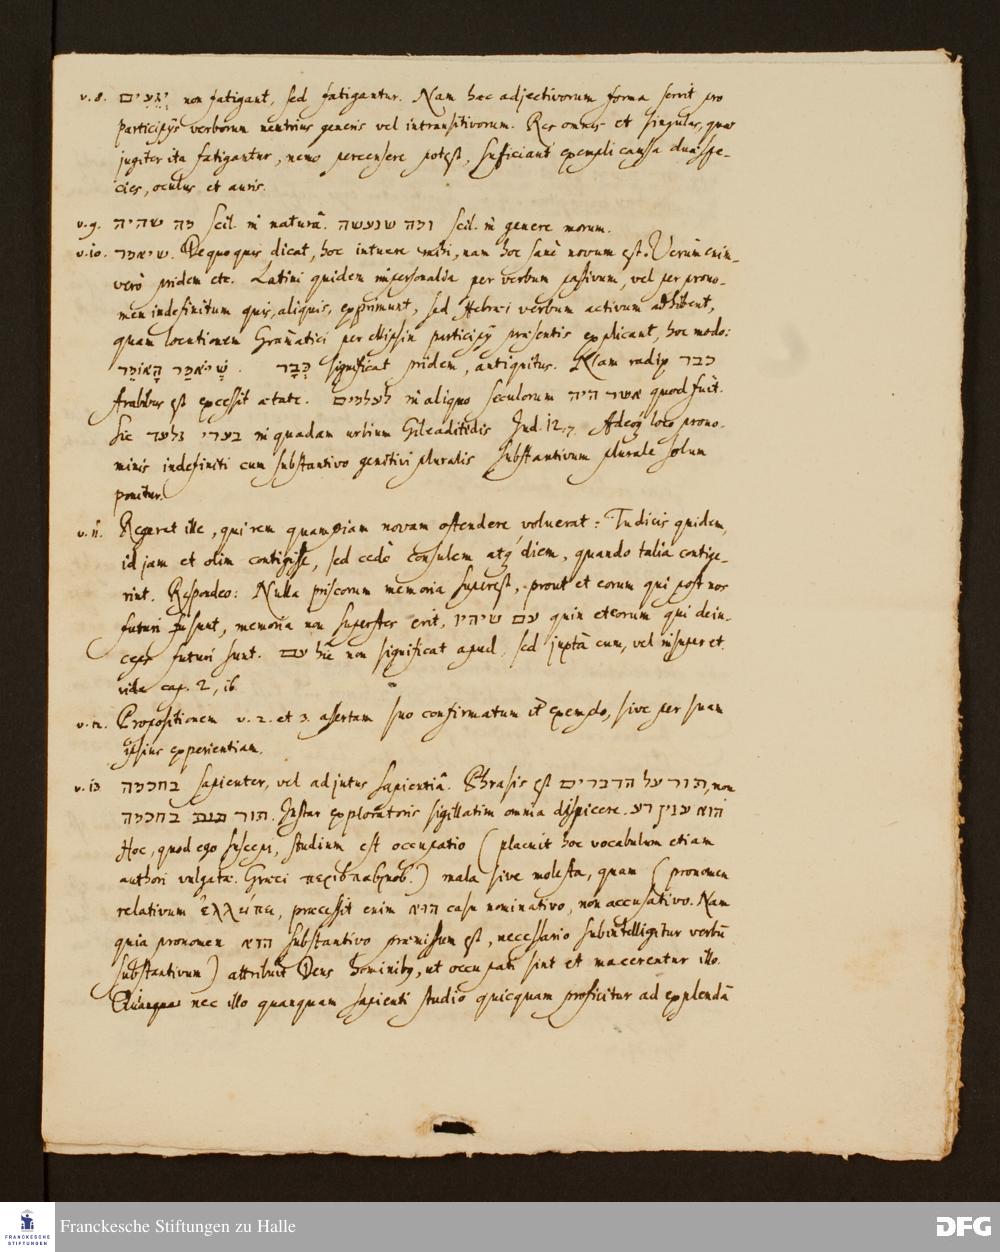 v. 8. יְגֵעִים non fatigant, sed fatigantur. Nam haec adjectivorum forma servit pro
participijs verborum neutrius generis vel intransitivorum. Res omnes et singulas, quae
jugiter ita fatigantur, nemo percensere potest, sufficiant exempli caussa duae spe-
cies, oculus et auris.
v. 9. מה שהיה scil. in naturâ וּמה שנעשה scil. in genere morum.
v. 10. שיאמר. De quo quis dicat, hoc intuere mihi, nam hoc sanè novum est. Verum enim-
verò pridem etc. Latini quidem impersonalia per verbum passivum, vel per prono-
men indefinitum quis, aliquis, exprimunt, sed Hebraei verbum activum adhibent,
quam locutionem Gram̄atici per ellipsin participij praesentis explicant, hoc modo:
שֶׁיֹּאמַר הָאוֹמֵר . כְּבָר significat pridem, antiquitus. Nam radix כבר
Arabibus est excessit aetate. לעלמים in aliquo seculorum אשר היה quod fuit.
Sic בערי גלעד in quadam urbium Gileaditidis Jud. 12,7. Adeoq́ loco prono-
minis indefiniti cum substantivo genitivi pluralis substantivum plurale solum
ponitur.
v. 11. Regeret ille, qui rem quampiam novam ostendere voluerat: Tu dicis quidem,
id jam et olim contigisse, sed cedò consulem atq́ diem, quando talia contige-
rint. Respondeo: Nulla priscorum memoria superest, prout et eorum qui post nos
futuri sunt, memoria non superstes erit, עם שיהיו quin et eorum qui dein-
ceps futuri sunt. עם hîc non significat apud, sed juxtà cum, vel insuper et.
vide cap. 2, 16.
v. 12. Propositionem v. 2. et 3. assertam suo confirmatum it exemplo, sive per suam
ipsius experientiam.
v. 13 בחכמה sapienter, vel adjutus sapientiâ. Phrasis est תור על הדברים, non
תור בחכמה. Instar exploratoris sigillatim omnia dispicere. הוא ענין רע
Hoc, quod ego suscepi, studium est occupatio (placuit hoc vocabulum etiam
authori vulgatae. Graeci περισπασμος.) mala sive molesta, quam (pronomen
relativum ἐλλείπει, praecessit enim הוא casu nominativo, non accusativo. Nam
quia pronomen הוא substantivo praemissum est, necessario subintelligitur verbū
substantivum) attribuit Deus hominibꝰ, ut occupati sint et macerentur illo.
Quanquam nec illo quanquam sapienti studio quicquam proficitur ad explendā
Franckesche Stiftungen zu Halle
FRANCKESCHE
STIFTUNGEN
DFG